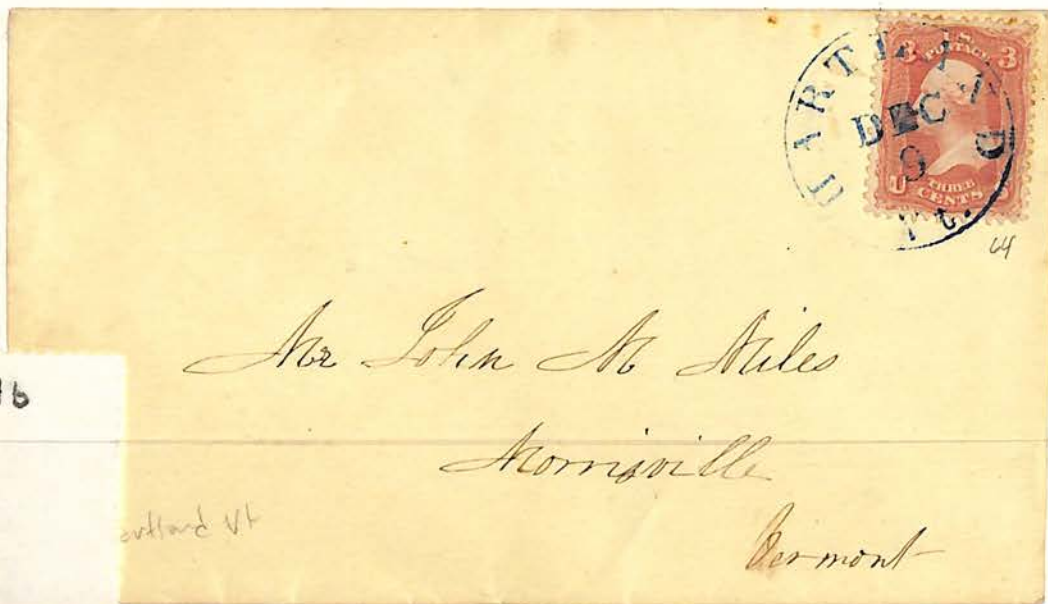 HARTLAND
DEC
9
Vt.
3 U.S. POSTAGE 3
U THREE S
CENTS
64
Mr John M Miles
Morrisville
Vermont
16
artland Vt